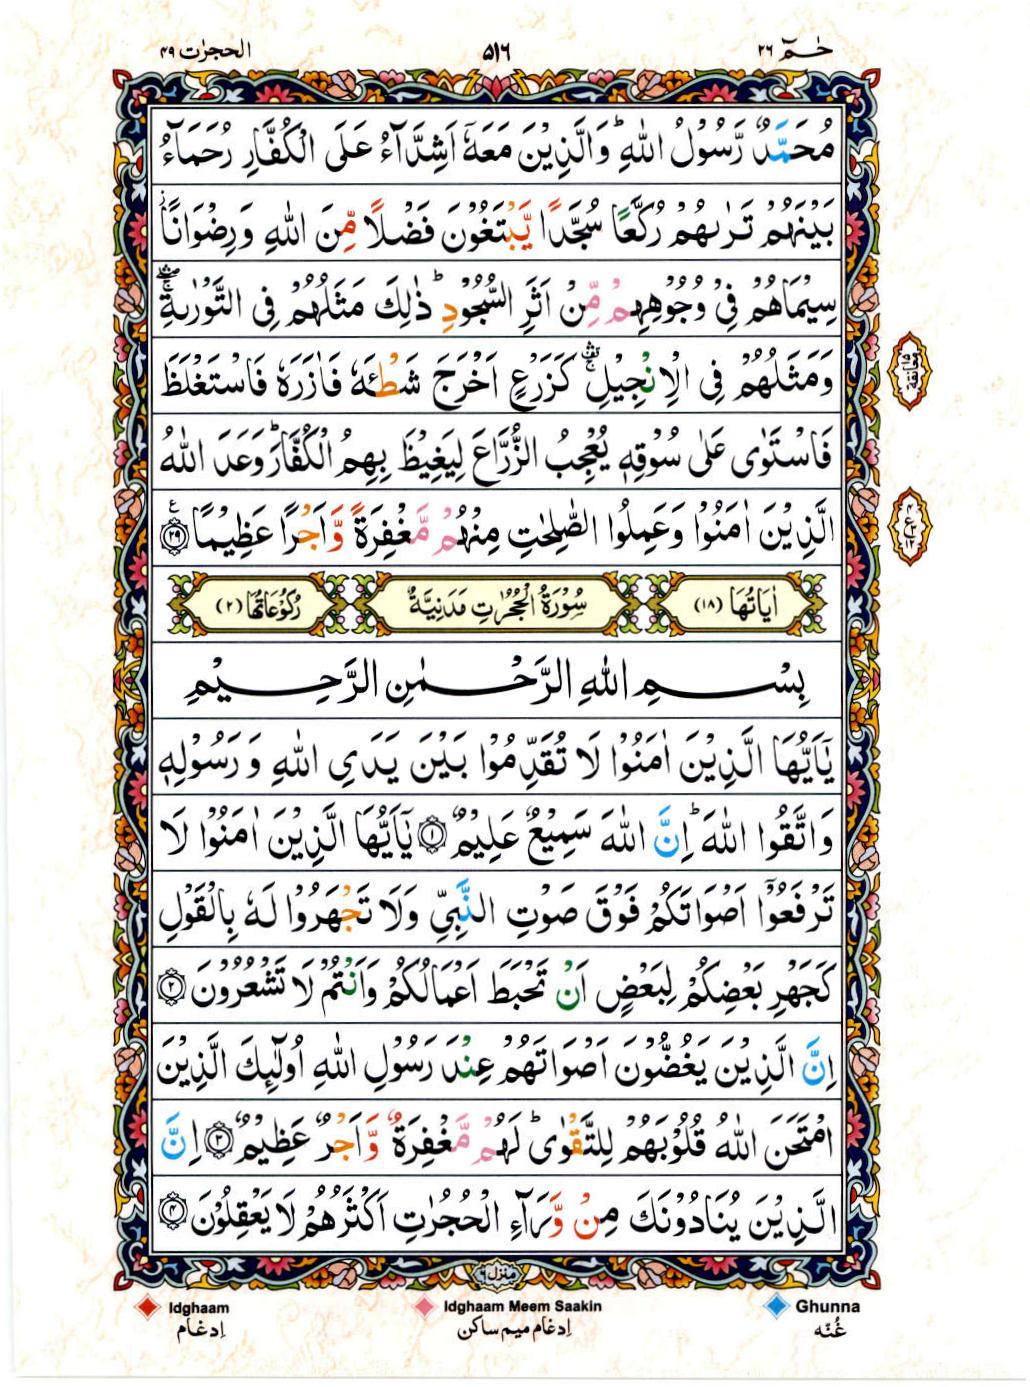 حٰمٓ ۲۶
۵۱۶
الحجرٰت ۴۹
مُحَمَّدٌ رَّسُوْلُ اللّٰهِ ؕ وَالَّذِيْنَ مَعَهٗۤ اَشِدَّآءُ عَلَى الْكُفَّارِ رُحَمَآءُ
بَيْنَهُمْ تَرٰىهُمْ رُكَّعًا سُجَّدًا يَّبْتَغُوْنَ فَضْلًا مِّنَ اللّٰهِ وَرِضْوَانًا ؗ
سِيْمَاهُمْ فِيْ وُجُوْهِهِمْ مِّنْ اَثَرِ السُّجُوْدِ ؕ ذٰلِكَ مَثَلُهُمْ فِى التَّوْرٰىةِ ۛۖۚ
وَمَثَلُهُمْ فِى الْاِنْجِيْلِ ۛۚ كَزَرْعٍ اَخْرَجَ شَطْـَٔهٗ فَاٰزَرَهٗ فَاسْتَغْلَظَ
فَاسْتَوٰى عَلٰى سُوْقِهٖ يُعْجِبُ الزُّرَّاعَ لِيَغِيْظَ بِهِمُ الْكُفَّارَ ؕ وَعَدَ اللّٰهُ
الَّذِيْنَ اٰمَنُوْا وَعَمِلُوا الصّٰلِحٰتِ مِنْهُمْ مَّغْفِرَةً وَّاَجْرًا عَظِيْمًا ﴿۲۹﴾ ع
معانقة ۱۵
ع ۱۲
اٰيَاتُهَا (۱۸)
سُوْرَةُ الْحُجُرٰتِ مَدَنِيَّةٌ
رُكُوْعَاتُهَا (۲)
بِسْمِ اللّٰهِ الرَّحْمٰنِ الرَّحِيْمِ
يٰۤاَيُّهَا الَّذِيْنَ اٰمَنُوْا لَا تُقَدِّمُوْا بَيْنَ يَدَىِ اللّٰهِ وَرَسُوْلِهٖ
وَاتَّقُوا اللّٰهَ ؕ اِنَّ اللّٰهَ سَمِيْعٌ عَلِيْمٌ ﴿۱﴾ يٰۤاَيُّهَا الَّذِيْنَ اٰمَنُوْا لَا
تَرْفَعُوْۤا اَصْوَاتَكُمْ فَوْقَ صَوْتِ النَّبِيِّ وَلَا تَجْهَرُوْا لَهٗ بِالْقَوْلِ
كَجَهْرِ بَعْضِكُمْ لِبَعْضٍ اَنْ تَحْبَطَ اَعْمَالُكُمْ وَاَنْتُمْ لَا تَشْعُرُوْنَ ﴿۲﴾
اِنَّ الَّذِيْنَ يَغُضُّوْنَ اَصْوَاتَهُمْ عِنْدَ رَسُوْلِ اللّٰهِ اُولٰٓئِكَ الَّذِيْنَ
امْتَحَنَ اللّٰهُ قُلُوْبَهُمْ لِلتَّقْوٰى ؕ لَهُمْ مَّغْفِرَةٌ وَّاَجْرٌ عَظِيْمٌ ﴿۳﴾ اِنَّ
الَّذِيْنَ يُنَادُوْنَكَ مِنْ وَّرَآءِ الْحُجُرٰتِ اَكْثَرُهُمْ لَا يَعْقِلُوْنَ ﴿۴﴾
منزل ۶
Idghaam
ادغام
Idghaam Meem Saakin
ادغام میم ساکن
Ghunna
غُنّه